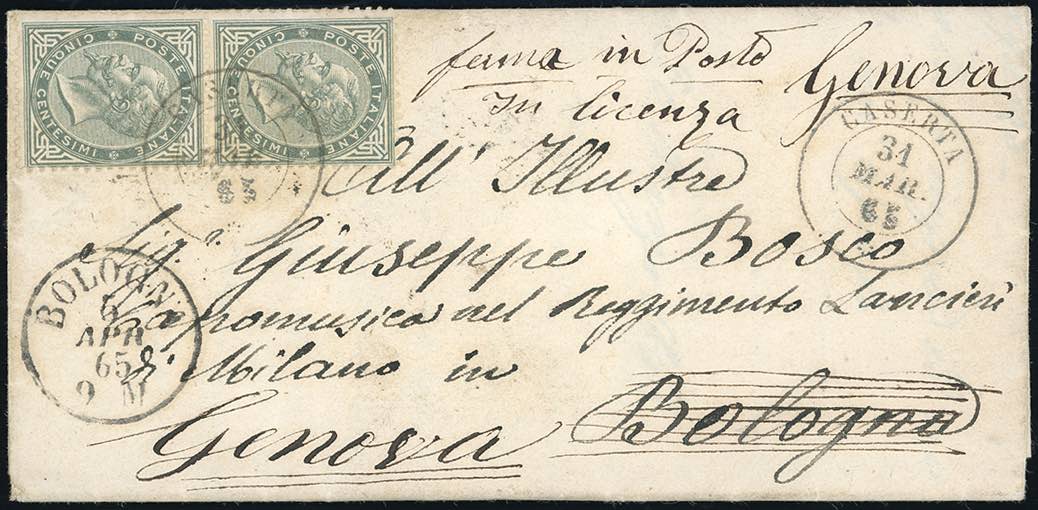 POSTE ITALIANE
CINQUE CENTESIMI
POSTE ITALIANE
CINQUE CENTESIMI
ferma in Posta Genova
In licenza
CASERTA
31
MAR.
65
CASERTA
65
All' Illustre
Sig.r Giuseppe Bosco
Capomusica nel Reggimento Lancieri
di Milano in
Bologna
Genova
BOLOGNA
6
APR
65
9 M